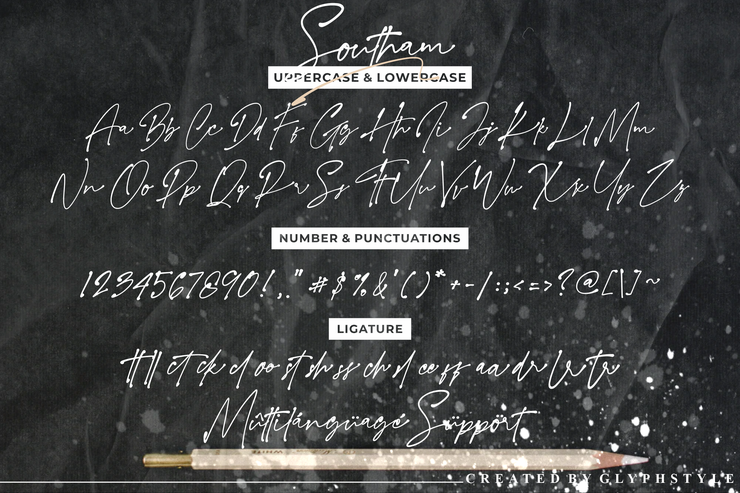 Southam
UPPERCASE & LOWERCASE
Aa Bb Cc Dd Ff Gg Hh Ii Jj Kk Ll Mm
Nn Oo Pp Qq Rr Ss Tt Uu Vv Ww Xx Yy Zz
NUMBER & PUNCTUATIONS
1234567890!,." #$%&'()*+-/:;<=>?@[\]~
LIGATURE
tt ll ct ck cl oo st sh ss ch rl ee ff aa dr lr tr
Mûltilángüagé Süppört
CREATED BY GLYPHSTYLE